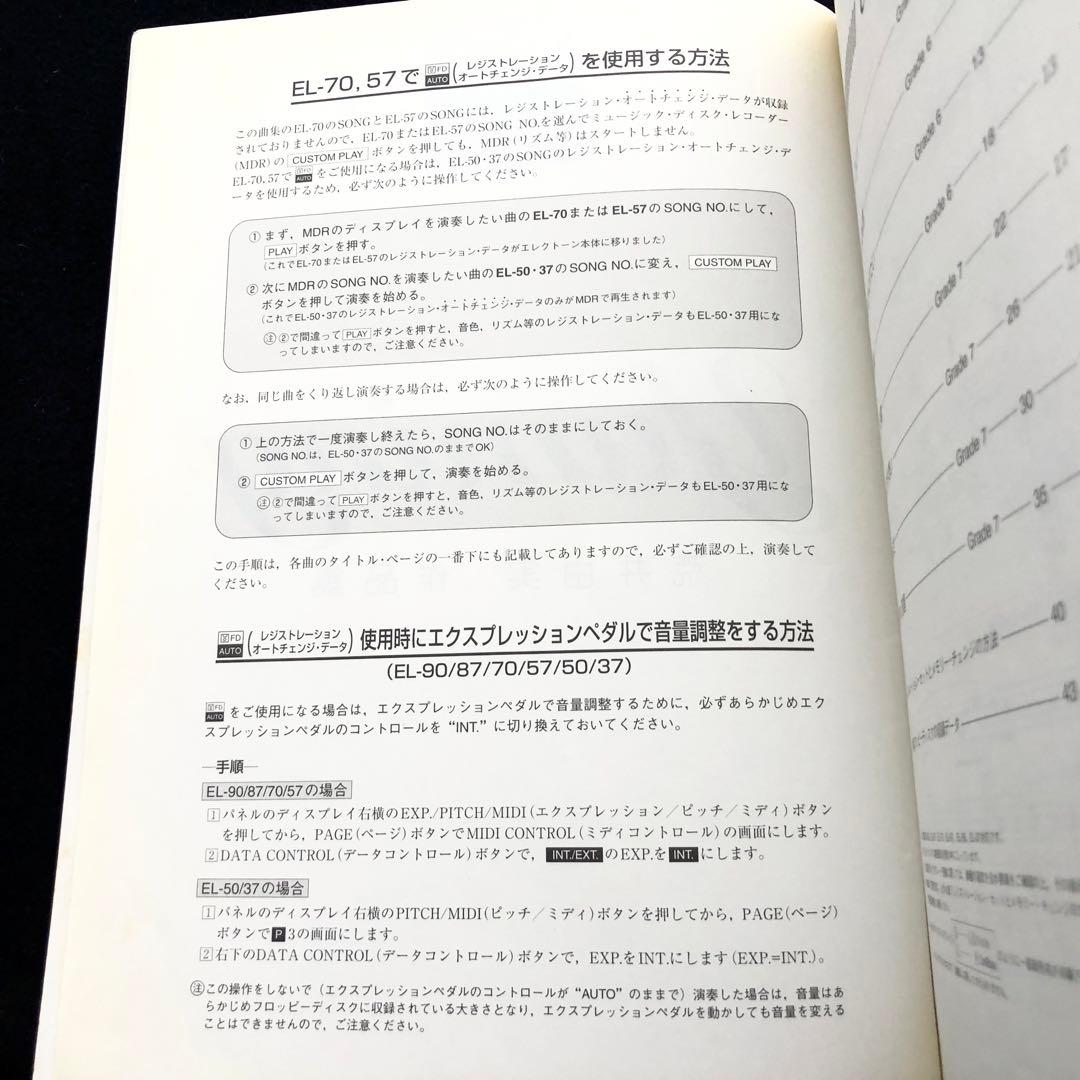 EL-70, 57で 団FD AUTO (レジストレーション オートチェンジ・データ) を使用する方法
この曲集のEL-70のSONGとEL-57のSONGには，レジストレーション・オートチェンジ・データが収録
されておりませんので，EL-70またはEL-57のSONG NO.を選んでミュージック・ディスク・レコーダー
(MDR)の CUSTOM PLAY ボタンを押しても，MDR(リズム等)はスタートしません。
EL-70, 57で 団FD AUTO をご使用になる場合は，EL-50・37のSONGのレジストレーション・オートチェンジ・デ
ータを使用するため，必ず次のように操作してください。
① まず，MDRのディスプレイを演奏したい曲のEL-70またはEL-57のSONG NO.にして，
PLAY ボタンを押す。
(これでEL-70またはEL-57のレジストレーション・データがエレクトーン本体に移りました)
② 次にMDRのSONG NO.を演奏したい曲のEL-50・37のSONG NO.に変え， CUSTOM PLAY
ボタンを押して演奏を始める。
(これでEL-50・37のレジストレーション・オートチェンジ・データのみがMDRで再生されます)
㊟ ②で間違って PLAY ボタンを押すと，音色，リズム等のレジストレーション・データもEL-50・37用にな
ってしまいますので，ご注意ください。
なお，同じ曲をくり返し演奏する場合は，必ず次のように操作してください。
① 上の方法で一度演奏し終えたら，SONG NO.はそのままにしておく。
(SONG NO.は，EL-50・37のSONG NO.のままでOK)
② CUSTOM PLAY ボタンを押して，演奏を始める。
㊟ ②で間違って PLAY ボタンを押すと，音色，リズム等のレジストレーション・データもEL-50・37用にな
ってしまいますので，ご注意ください。
この手順は，各曲のタイトル・ページの一番下にも記載してありますので，必ずご確認の上，演奏して
ください。
団FD AUTO (レジストレーション オートチェンジ・データ) 使用時にエクスプレッションペダルで音量調整をする方法
(EL-90/87/70/57/50/37)
団FD AUTO をご使用になる場合は，エクスプレッションペダルで音量調整するために，必ずあらかじめエク
スプレッションペダルのコントロールを“INT.”に切り換えておいてください。
―手順―
EL-90/87/70/57の場合
1 パネルのディスプレイ右横のEXP./PITCH/MIDI(エクスプレッション／ピッチ／ミディ)ボタン
を押してから，PAGE(ページ)ボタンでMIDI CONTROL(ミディコントロール)の画面にします。
2 DATA CONTROL(データコントロール)ボタンで， INT./EXT. のEXP.を INT. にします。
EL-50/37の場合
1 パネルのディスプレイ右横のPITCH/MIDI(ピッチ／ミディ)ボタンを押してから，PAGE(ページ)
ボタンで P 3の画面にします。
2 右下のDATA CONTROL(データコントロール)ボタンで，EXP.をINT.にします(EXP.=INT.)。
㊟ この操作をしないで(エクスプレッションペダルのコントロールが“AUTO”のままで)演奏した場合は，音量はあ
らかじめフロッピーディスクに収録されている大きさとなり，エクスプレッションペダルを動かしても音量を変える
ことはできませんので，ご注意ください。
Grade 6 13
Grade 6 18
Grade 6
Grade 7 22
Grade 7 26
Grade 7 30
Grade 7 35
40
43